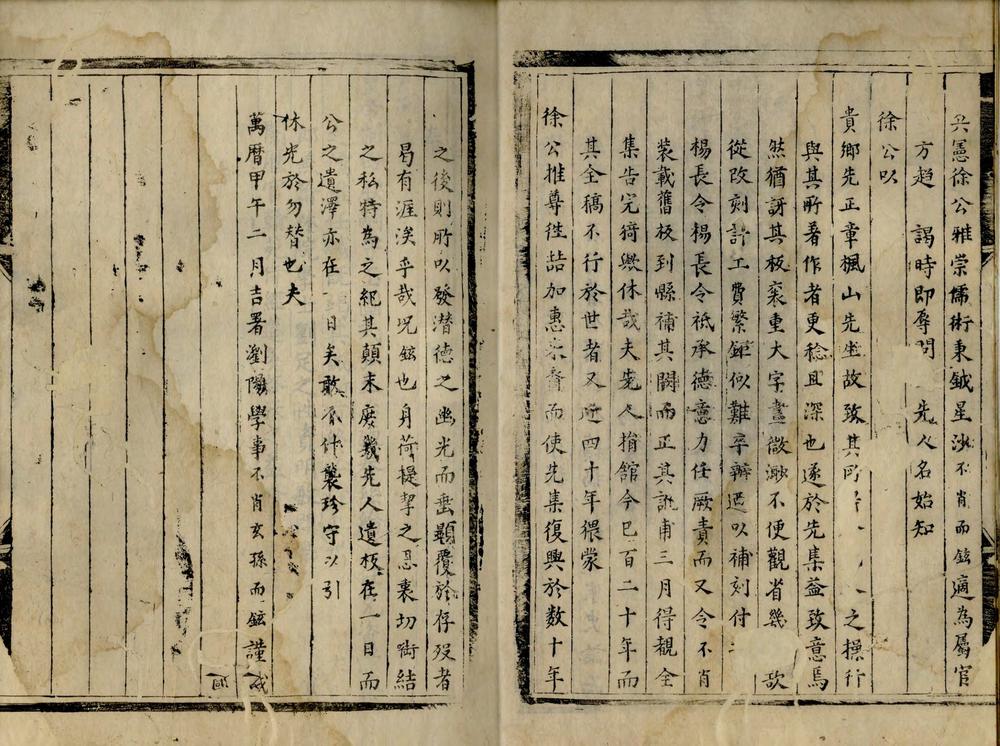 共憲徐公雅崇儒術東鉞星沙不肖而鉉適為屬官
方趨　謁時即辱問　先人名始知
徐公以
貴鄉先正章楓山先生故致其　之操行
與其所著作者更稔且深也遂於先集益致意焉
然猶訝其板袤重大字畫微渺不便觀省幾　欲
從改刻計工費繁鉅似難卒辦迺以補刻付
楊長令楊長令祇承德意力任厥責而又令不肖
裝載舊板到縣補其闕而正其訛甫三月得覩全
集告完猗歟休哉夫先人捐館今已百二十年而
其全稿不行於世者又近四十年猥蒙
徐公推尊往喆加惠來裔而使先集復興於数十年
之後則所以發潛德之幽光而垂顯覆於存歿者
曷有涯涘乎哉况鉉也身荷提挈之恩衷切啣結
之私特為之紀其顛末庶幾先人遺板在一日而
公之遺澤亦在一日矣敢不什襲珍守以引
休光於勿替也夫
萬曆甲午二月吉署瀏陽學事不肖玄孫而鉉謹